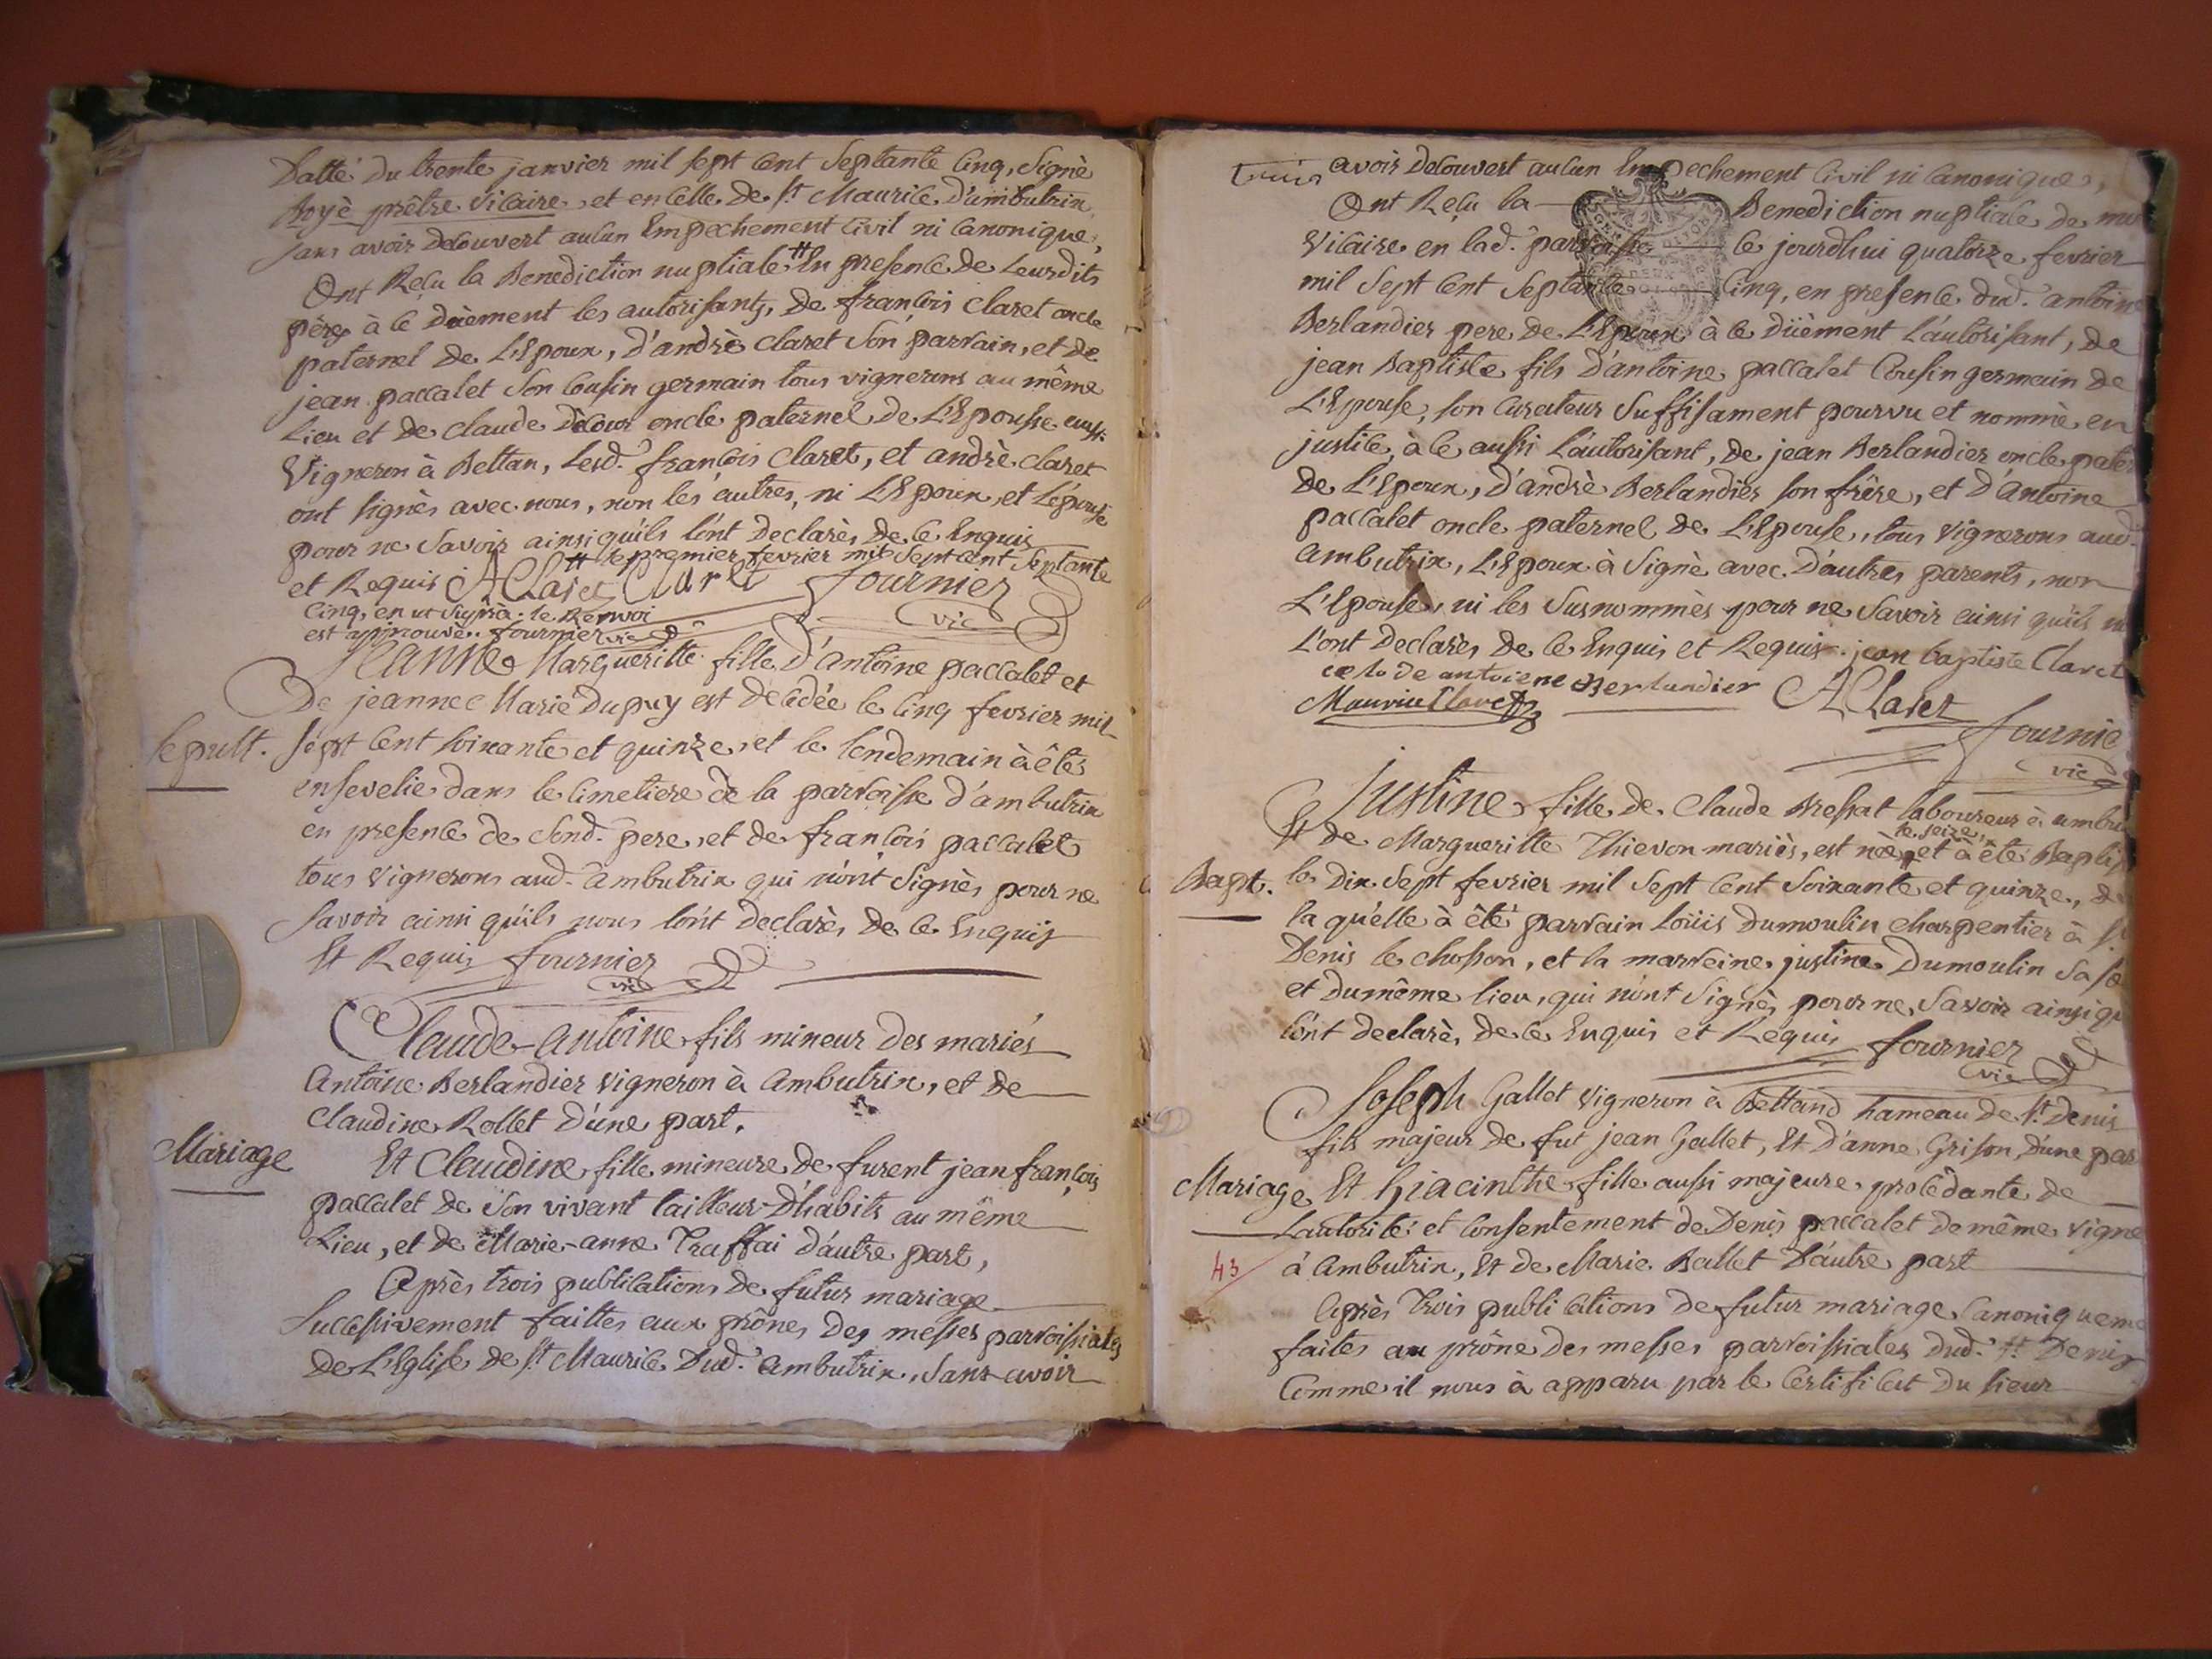 Datté du trente janvier mil sept cent Septante Cinq, Signè
Boyè prêtre Vicaire, et en Celle de St Maurice D'ambutrix
sans avoir Decouvert aucun Empechement Civil ni Canonique,
Ont Reçu la Benediction nuptiale # En presence de Leursdits
pères à ce Düement les autorisants, de françois Claret oncle
paternel de L'Epoux, d'andrè Claret Son parrain, et de
jean paccalet Son Cousin germain tous vignerons au même
Lieu et de Claude oncle paternel de L'Epousse aussi
Vigneron à Bettan, Lesd. françois Claret, et andrè Claret
ont signès avec nous, non les autres, ni L'Epoux et L'épouse
pour ne Savoir ainsi qu'ils l'ont Declarès, de ce Enquis
# le premier fevrier mil Sept cent Septante
et Requis A Claret Claret fournier
Cinq, en ut Suprà. le Renvoi vic
est approuvé. fournier vic
JEANNE Margueritte fille d'Antoine paccalet et
De jeanne Marie Dupuy est decèdée le Cinq fevrier mil
Sepult. Sept Cent Soixante et quinze, et le lendemain à êtè
ensevelie dans le Cimetiere de la parroisse d'ambutrix
en presence de Sond. pere, et de francois paccalet
tous Vignerons aud. ambutrix qui n'ont Signès pour ne
Savoir ainsi qu'ils nous l'ont declarès, de ce Enquis
Et Requis fournier
vic
Claude-Antoine fils mineur des mariés
Antoine Berlandier Vigneron à Ambutrix, et de
Claudine Rollet D'une part.
Mariage Et Claudine fille mineure de furent jean françois
paccalet de Son vivant tailleur-D'habits au même
Lieu, et de Marie-anne Truffai d'autre part,
Après trois publications de futur mariage
Successivement faittes aux prônes des messes parroissiales
de L'Eglise de St Maurice Dud. Ambutrix, Sans avoir
avoir Decouvert aucun Empechement Civil ni Canonique,
Ont Reçu la Benediction nuptiale de
Vicaire en lad. parroisse le jourdhui quatorze fevrier
mil Sept Cent Septante Cinq, en presence dud. antoine
Berlandier pere de L'Epoux à ce Düèment L'autorisant, de
jean Baptiste fils D'antoine paccalet Cousin germain de
L'Epouse, son Curateur Suffisament pourvu et nommè en
justice, à ce aussi L'autorisant, de jean Berlandier oncle pater
de L'Epoux, D'andrè Berlandier son frère, et D'Antoine
paccalet oncle paternel de L'Epouse, tous Vignerons aud.
Ambutrix, L'Epoux à Signè avec D'autres parents, non
L'Epouse, ni les Susnommès pour ne Savoir ainsi qu'ils
L'ont Declarès, de ce Enquis et Requis. jean baptiste Claret
de antoiene Berlandier A Claret
Maurice Claret fournie
vic
Justine fille de Claude Bressat laboureur à ambu
le seize,
Et de Margueritte Thievon mariès, est nèe et à êtè Baptis
Bapt. le Dix Sept fevrier mil Sept Cent Soixante et quinze, de
la qu'elle à êtè parrain Loüis Dumoulin charpentier à St
Denis le Chosson, et la marreine justine Dumoulin Sa
et du même lieu, qui n'ont Signès pour ne Savoir ainsi qu
l'ont declarès, de ce Enquis et Requis fournier
vic
Joseph Gallet Vigneron à Bettand hameau de St Denis
fils majeur de fut jean Gallet, Et D'anne Grison, D'une par
Mariage Et hiacinthe fille aussi majeure procèdante de
L'autorité et Consentement de Denis paccalet de même vigne
43 à Ambutrix, Et de Marie Ballet D'autre part
Après Trois publications de futur mariage Canoniqueme
faites au prône des messes parroissiales dud. St Denis
Comme il nous à apparu par le Certificat du Sieur